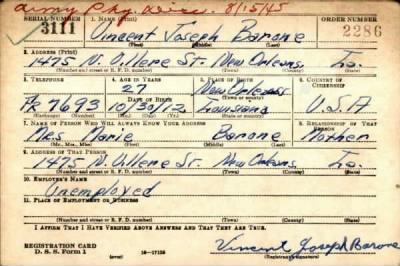 Army Phy. Disc. 8/15/45
SERIAL NUMBER 1. NAME (Print) ORDER NUMBER
3111 Vincent Joseph Barone 2286
(First) (Middle) (Last)
2. ADDRESS (Print)
1475 N. Villere St. New Orleans, La.
(Number and street or R. F. D. number) (Town) (County) (State)
3. TELEPHONE 4. AGE IN YEARS 5. PLACE OF BIRTH 6. COUNTRY OF CITIZENSHIP
27 New Orleans
DATE OF BIRTH (Town or county)
7693 10/30/12 Louisiana U.S.A
(Exchange) (No.) (Mo.) (Day) (Yr.) (State or country)
7. NAME OF PERSON WHO WILL ALWAYS KNOW YOUR ADDRESS 8. RELATIONSHIP OF THAT PERSON
Mrs Marie Barone Mother
(Mr., Mrs., Miss) (First) (Middle) (Last)
9. ADDRESS OF THAT PERSON
1475 N. Villere St. New Orleans, La.
(Number and street or R. F. D. number) (Town) (County) (State)
10. EMPLOYER'S NAME
Unemployed
11. PLACE OF EMPLOYMENT OR BUSINESS
(Number and street or R. F. D. number) (Town) (County) (State)
I AFFIRM THAT I HAVE VERIFIED ABOVE ANSWERS AND THAT THEY ARE TRUE.
REGISTRATION CARD
D. S. S. Form 1 (over) Vincent Joseph Barone
(Registrant's signature)